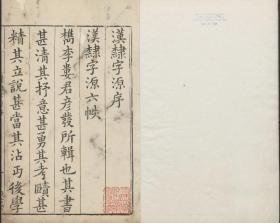 漢隸字源序
漢隸字源六帙
檇李婁君彥發所輯也其書
甚清其抒意甚勇其考賾甚
精其立說甚當其沾丐後學